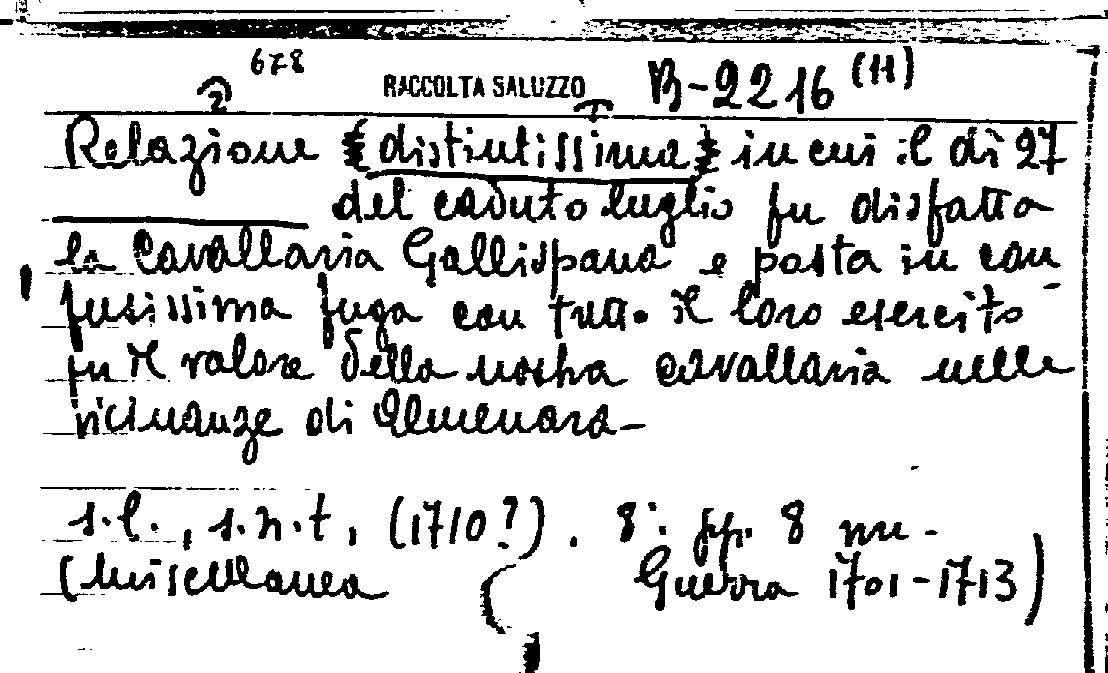 678
RACCOLTA SALUZZO B-2216 (11)
2 1
Relazione (distintissima) in cui il dì 27
del caduto luglio fu disfatta
la Cavallaria Gallispana e posta in con
fusissima fuga con tutto il loro esercito
fu il valore della nostra cavallaria nelle
vicinanze di Almenara-
s.l., s.n.t, (1710?). 8°. pp. 8 nn-
(Miscellanea Guerra 1701-1713)